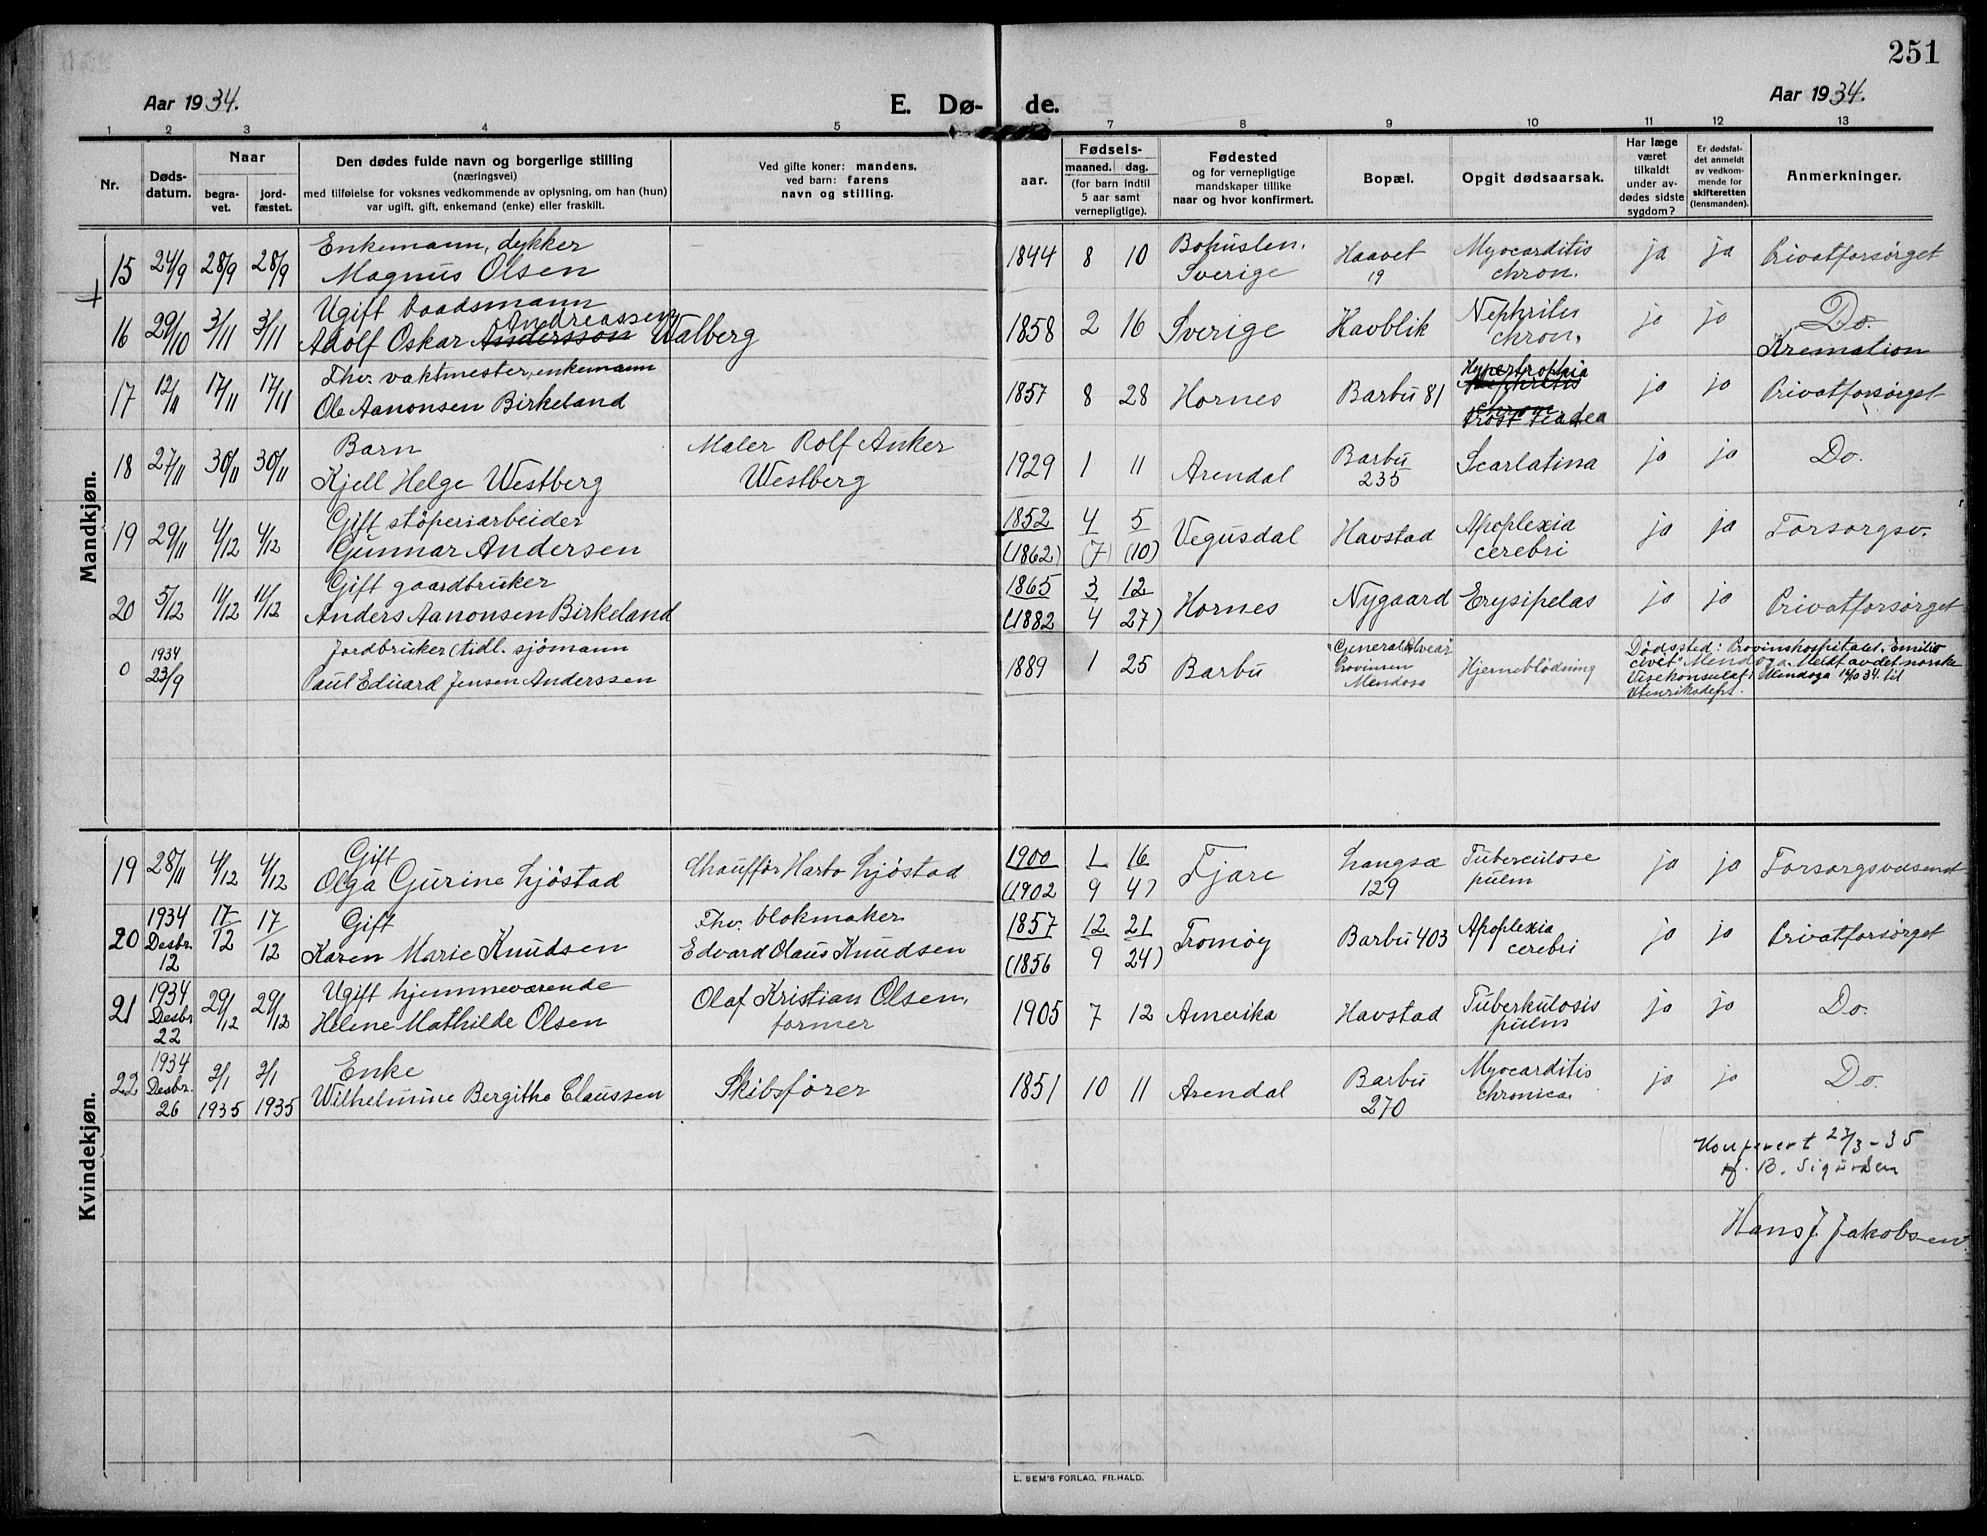 251
Aar 1934.
E. Dø- de.
Aar 1934.
1 2 3 4 5 7 8 9 10 11 12 13
Nr.
Døds-
datum.
Naar
begra-
vet.
jord-
fæstet.
Den dødes fulde navn og borgerlige stilling
(næringsvei)
med tilføielse for voksnes vedkommende av oplysning, om han (hun)
var ugift, gift, enkemand (enke) eller fraskilt.
Ved gifte koner: mandens,
ved barn: farens
navn og stilling.
aar.
Fødsels-
maaned. dag.
(for barn indtil
5 aar samt
vernepligtige).
Fødested
og for vernepligtige
mandskaper tillike
naar og hvor konfirmert.
Bopæl.
Opgit dødsaarsak.
Har læge
været
tilkaldt
under av-
dødes sidste
sygdom?
Er dødsfal-
det anmeldt
av vedkom-
mende for
skifteretten
(lensmanden).
Anmerkninger.
Mandkjøn.
Enkemann, dykker
15 24/9 28/9 28/9 Magnus Olsen
1844 8 10 Bohuslen. Sverige Haavet 19 Myocarditis chron. ja ja Privatforsørget
Ugift baadsmann
Andreassen
16 29/10 3/11 3/11 Adolf Oskar Andersson Walberg
1858 2 16 Sverige Havblik Nephritis chron. ja ja Do.
Kremation
Fhv. vaktmester, enkemann
17 12/11 17/11 17/11 Ole Aanonsen Birkeland
1857 8 28 Hornes Barbu 81 Hypertrophia Nephritis chron. prostatadea ja ja Privatforsørget
Barn
18 27/11 30/11 30/11 Kjell Helge Westberg Maler Rolf Anker Westberg
1929 1 11 Arendal Barbu 235 Scarlatina ja ja Do.
Gift støperiarbeider
19 29/11 4/12 4/12 Gunnar Andersen
1852 4 5 Vegusdal Havstad Apoplexia cerebri ja ja Forsorgsv.
(1862) (7) (10)
Gift gaardbruker
20 5/12 11/12 11/12 Anders Aanonsen Birkeland
1865 3 12 Hornes Nygaard Erysipelas ja ja Privatforsørget
(1882 4 27)
Jordbruker (tidl. sjømann
0 1934 23/9 Paul Eduard Jensen Anderssen
1889 1 25 Barbu General Alvear Provinsen Mendosa Hjerneblødning
Dødssted: Provinshospitalet, Emilio
civit Mendoga. Meldt av det norske
Visekonsulat i Mendoga 14/10 34. til
Utenriksdept.
Kvindekjøn.
Gift
19 28/11 4/12 4/12 Olga Gurine Ljøstad Chauffør Harbo Ljøstad
1900 1 16 Fjære Langsæ 129 Tuberculose pulm ja ja Forsorgsvæsenet
(1902 9 4)
Gift
20 1934 Desbr. 12 17/12 17/12 Karen Marie Knudsen Fhv. blokmaker Edvard Olaus Knudsen
1857 12 21 Tromøy Barbu 403 Apoplexia cerebri ja ja Privatforsørget
(1856 9 24)
Ugift hjemmeværende
21 1934 Desbr 22 29/12 29/12 Helene Mathilde Olsen Olaf Kristian Olsen, former
1905 7 12 Amerika Havstad Tuberkulosis pulm ja ja Do.
Enke
22 1934 Desbr. 26 2/1 1935 2/1 1935 Wilhelmine Bergitha Claussen Skibsfører
1851 10 11 Arendal Barbu 270 Myocarditis chronica. ja ja Do.
Konferert 27/3-35
af. B. Sigurdsen
Hans J. Jakobsen.
L. SEM'S FORLAG, FR.HALD.